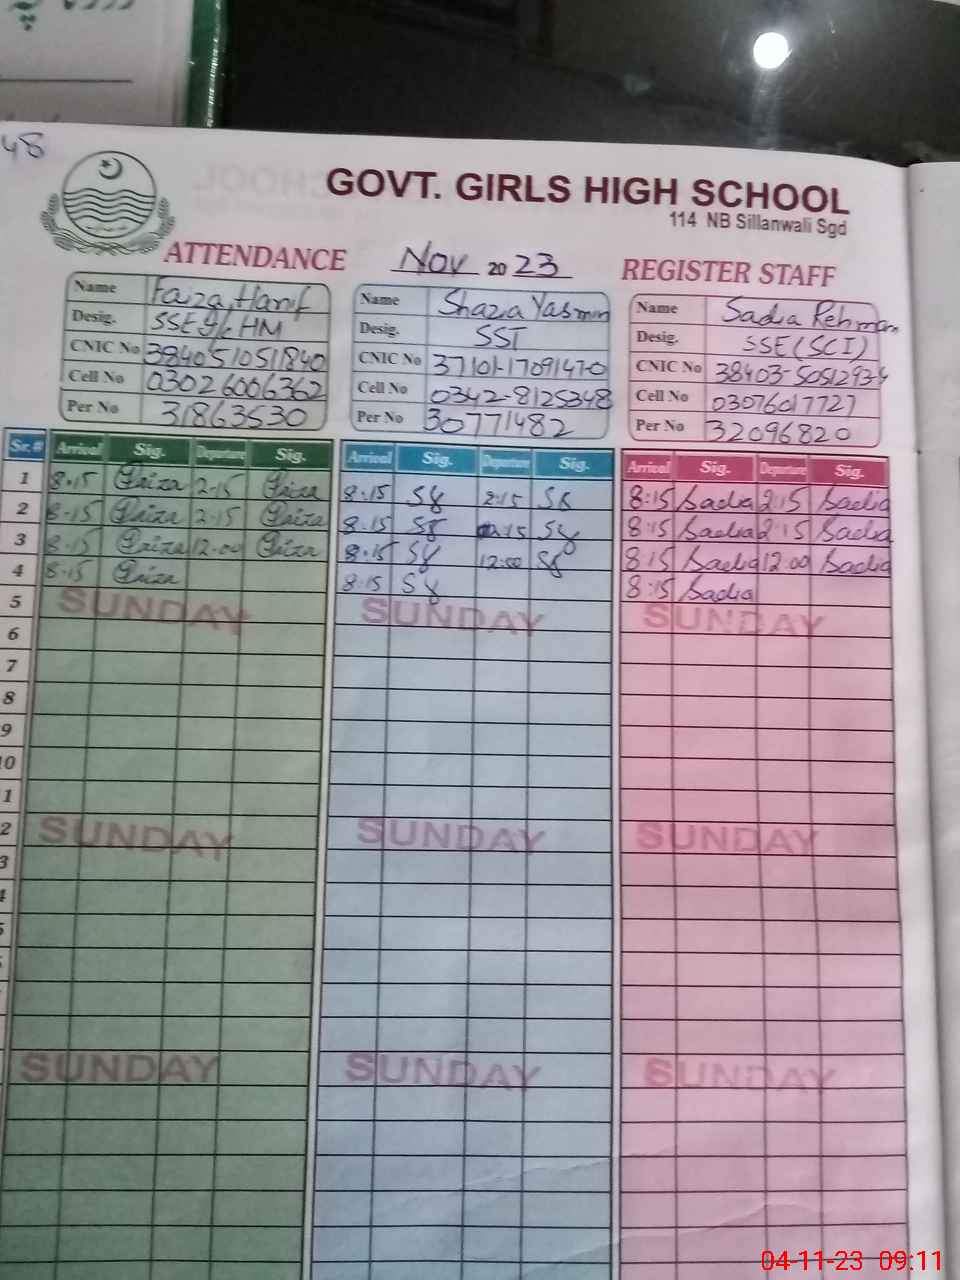 48
GOVT. GIRLS HIGH SCHOOL
114 NB Sillanwali Sgd
ATTENDANCE Nov 2023 REGISTER STAFF
Name Faiza Hanif Name Shazia Yasmin Name Sadia Rehman
Desig. SSE HM Desig. SST Desig. SSE (SCI)
CNIC No 3840510511840 CNIC No 37101-1709147-0 CNIC No
Cell No 03026006362 Cell No 0342-8125348 Cell No 03076017727
Per No 31863530 Per No 30771482 Per No 32096820
Sr. # Arrival Sig. Departure Sig. Arrival Sig. Departure Sig. Arrival Sig. Departure Sig.
1 8.15 Faiza 2.15 Faiza 8:15 2:15 8:15 Sadia 2:15 Sadia
2 8.15 Faiza 2.15 Faiza 8.15 2.15 8:15 Sadia 2:15 Sadia
3 8.15 Faiza 12.00 Faiza 8.15 12:00 8:15 Sadia 12:00 Sadia
4 8.15 Faiza 8:15 8:15 Sadia
5 SUNDAY SUNDAY SUNDAY
6
7
8
9
10
1
2 SUNDAY SUNDAY SUNDAY
3
SUNDAY SUNDAY SUNDAY
04-11-23 09:11